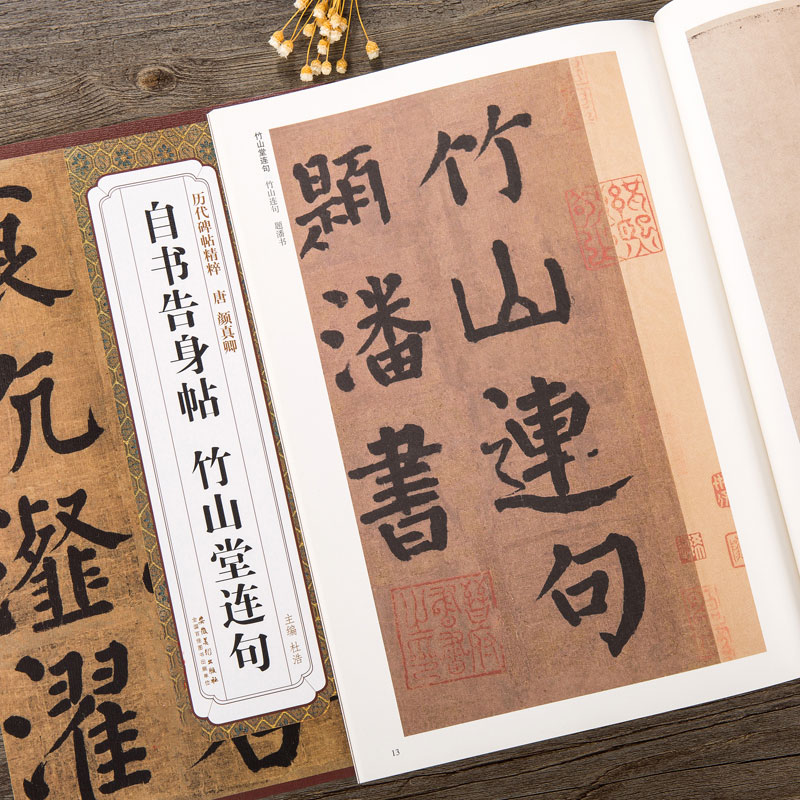 历代碑帖精粹 唐 颜真卿
自书告身帖 竹山堂连句
主编 杜浩
安徽美术出版社
竹山堂连句 竹山连句 题潘书
竹山連句
題潘書
13